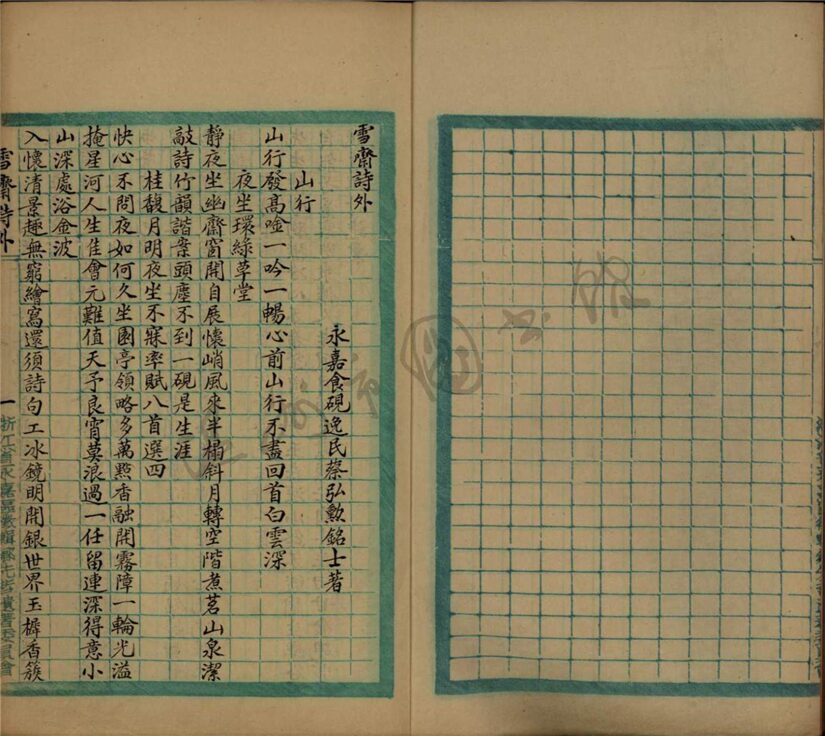 雪齋詩外
永嘉食硯逸民蔡弘勲銘士著
山行
山行發髙唫一吟一暢心前山行不盡回首白雲深
夜坐環綠草堂
靜夜坐幽齋窗開自展懷峭風來半榻斜月轉空階煮茗山泉潔
敲詩竹韻諧案頭塵不到一硯是生涯
桂馥月明夜坐不寐率賦八首選四
快心不問夜如何久坐園亭領略多萬點香融開霧障一輪光溢
掩星河人生佳會元難值天予良宵莫浪過一任留連深得意小
山深處浴金波
入懷清景趣無窮繪寫還須詩句工冰鏡明開銀世界玉樨香簇
雪齋詩外
一
浙江省永嘉區徵輯鄉先哲遺著委員會